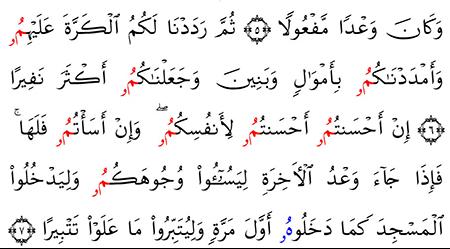 وَكَانَ وَعْدًا مَّفْعُولًا ۝٥ ثُمَّ رَدَدْنَا لَكُمُ الْكَرَّةَ عَلَيْهِمُۥ
وَأَمْدَدْنَاكُمُۥ بِأَمْوَالٍ وَبَنِينَ وَجَعَلْنَاكُمُۥ أَكْثَرَ نَفِيرًا
۝٦ إِنْ أَحْسَنتُمُۥ أَحْسَنتُمُۥ لِأَنفُسِكُمُۥ ۖ وَإِنْ أَسَأْتُمُۥ فَلَهَا ۚ
فَإِذَا جَآءَ وَعْدُ الْأَخِرَةِ لِيَسُۥٓـُٔوا۟ وُجُوهَكُمُۥ وَلِيَدْخُلُوا۟
الْمَسْجِدَ كَمَا دَخَلُوهُۥ أَوَّلَ مَرَّةٍ وَلِيُتَبِّرُوا۟ مَا عَلَوْا۟ تَتْبِيرًا ۝٧